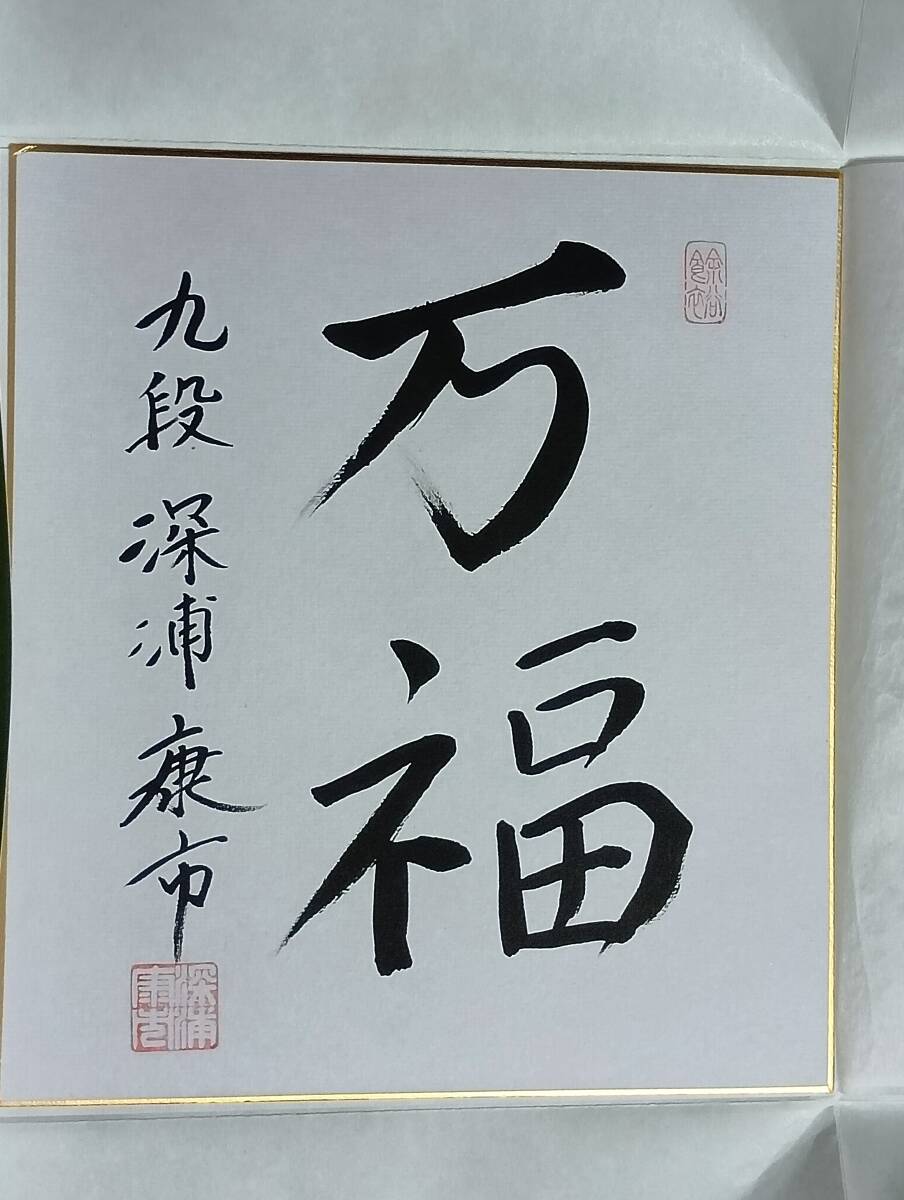 万福
九段 深浦康市
深浦康市